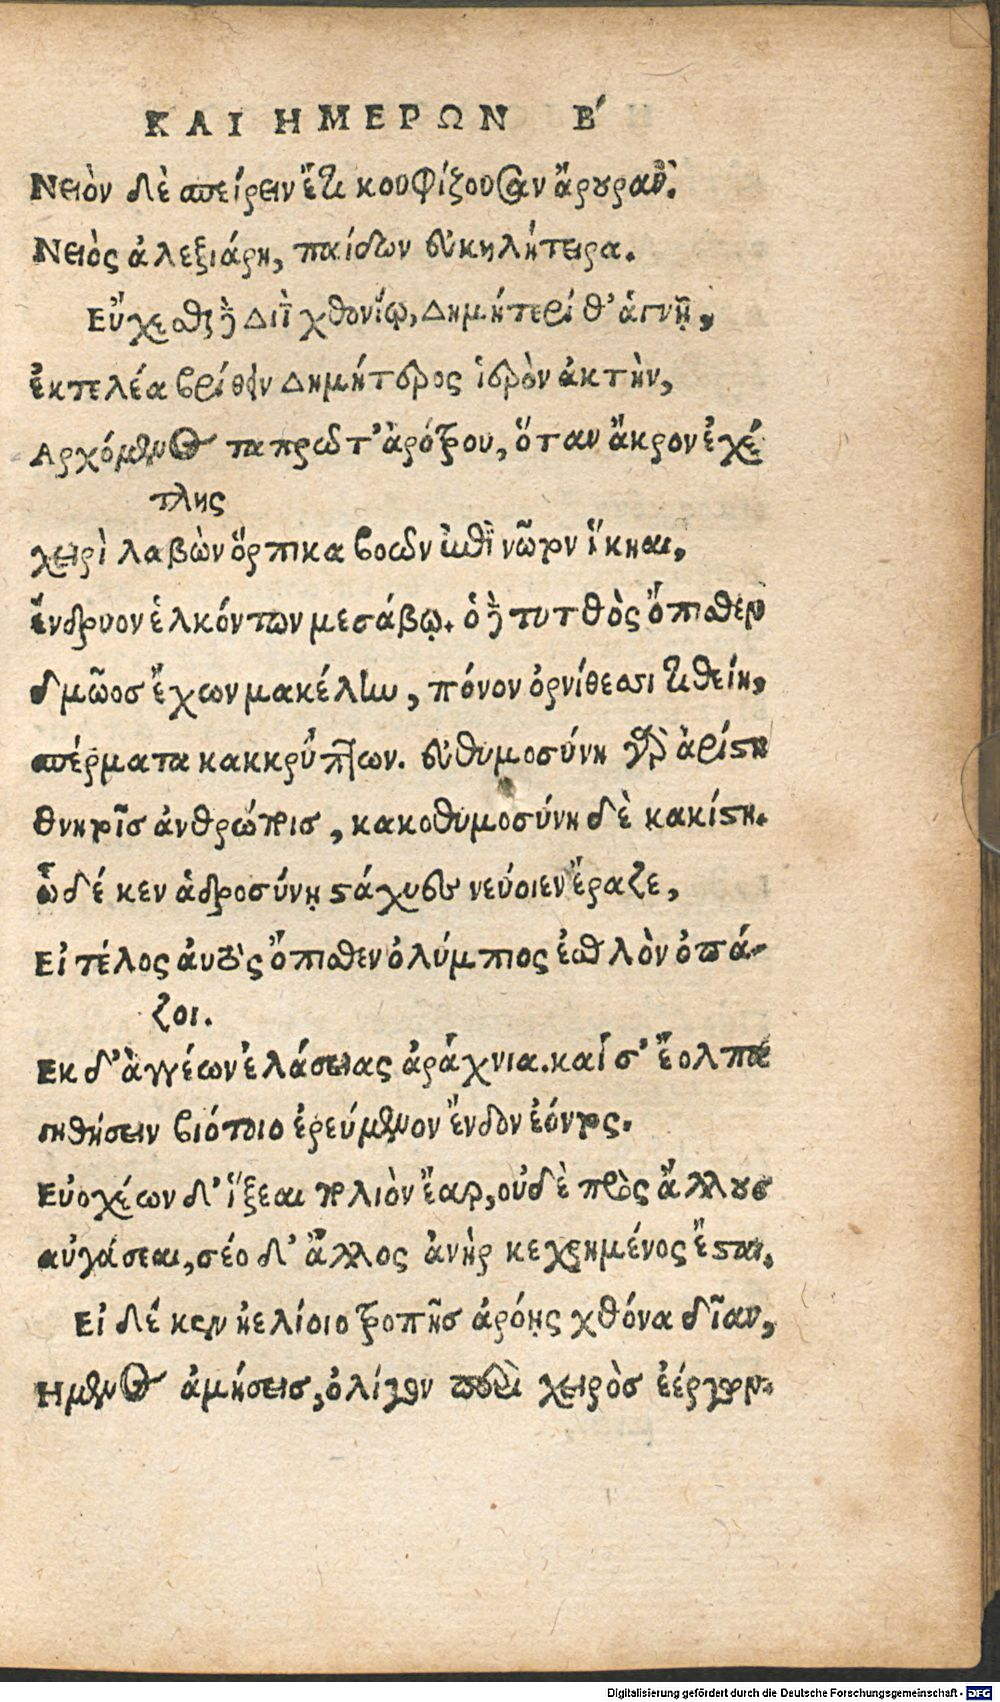 ΚΑΙ ΗΜΕΡΩΝ Β´
Νειὸν δὲ σπείρειν ἔτι κουφίζουσαν ἄρουραν.
Νειὸς ἀλεξιάρη, παίδων εὐκηλήτειρα.
Εὔχεσθαι δὲ Διῒ χθονίῳ, Δημήτερί θ' ἁγνῇ,
ἐκτελέα βρίθειν Δημήτερος ἱερὸν ἀκτὴν,
Αρχόμενος ταπρῶτ' ἀρότρου, ὅταν ἄκρον ἐχέ
τλης
χειρὶ λαβὼν ὅρπικα βοῶν ἐπὶ νῶτον ἵκηαι,
ἔνδρυον ἑλκόντων μεσάβῳ. ὁ δὲ τυτθὸς ὄπισθεν
δμῶος ἔχων μακέλην, πόνον ὀρνίθεσσι τιθείη,
σπέρματα κακκρύπτων. εὐθυμοσύνη γὰρ ἀρίστη
θνητοῖς ἀνθρώποις, κακοθυμοσύνη δὲ κακίστη.
ὧδέ κεν ἁδροσύνῃ στάχυες νεύοιεν ἔραζε,
Εἰ τέλος αὐτὸς ὄπισθεν ὀλύμπιος ἐσθλὸν ὀπά-
ζοι.
Εκ δ' ἀγγέων ἐλάσειας ἀράχνια. καί σ' ἔολπα
γηθήσειν βιότοιο ἐρεύμενον ἔνδον ἐόντος.
Εὐοχέων δ' ἵξεαι πολιὸν ἔαρ, οὐδὲ πρὸς ἄλλους
αὐγάσεαι, σέο δ' ἄλλος ἀνὴρ κεχρημένος ἔσται.
Εἰ δέ κεν ἠελίοιο τροπῇς ἀρόῃς χθόνα δῖαν,
Ημενος ἀμήσεις, ὀλίγον περὶ χειρὸς ἐέργων.
Digitalisierung gefördert durch die Deutsche Forschungsgemeinschaft - DFG